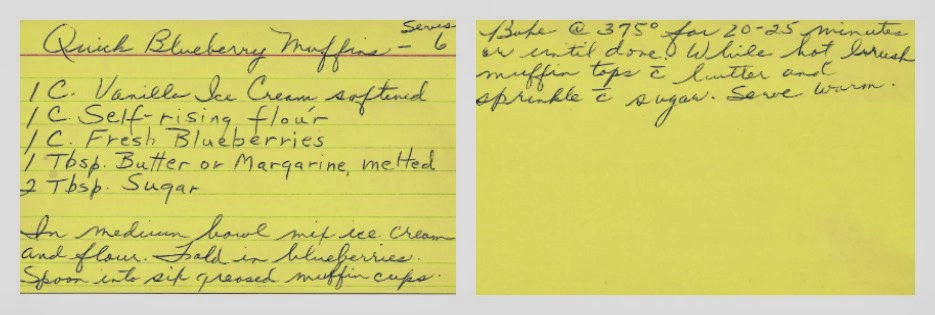 Quick Blueberry Muffins - Serves 6
1 C. Vanilla Ice Cream softened
1 C. Self-rising flour
1 C. Fresh Blueberries
1 Tbsp. Butter or Margarine, melted
2 Tbsp. Sugar
In medium bowl mix ice cream
and flour. Fold in blueberries.
Spoon into six greased muffin cups.
Bake @ 375° for 20-25 minutes
or until done. While hot brush
muffin tops c̄ butter and
sprinkle c̄ sugar. Serve warm.